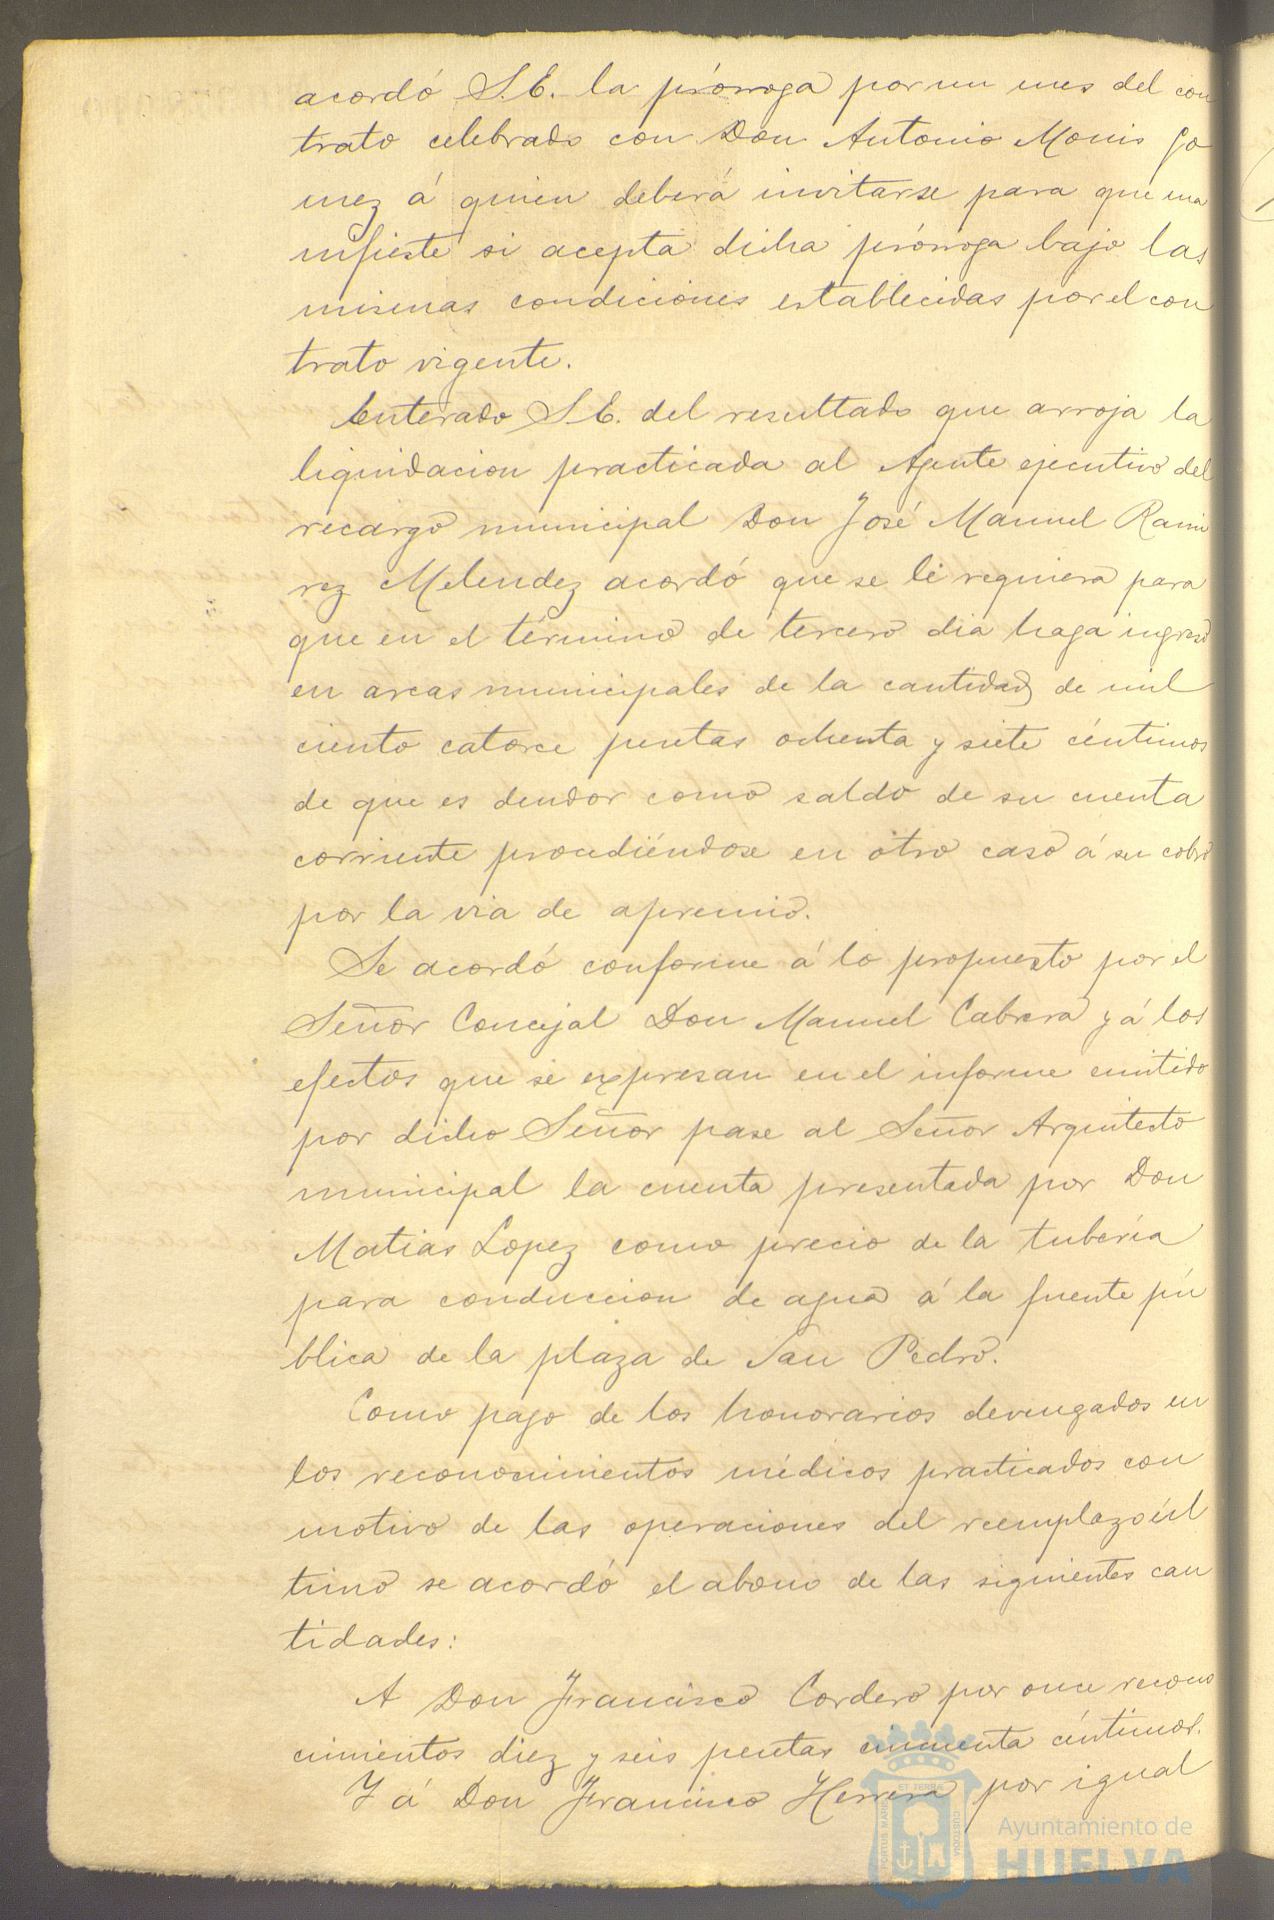 acordó S.E. la prórroga por un mes del con
trato celebrado con Don Antonio Monis Go
mez á quien deberá invitarse para que ma
nifieste si acepta dicha prórroga bajo las
mismas condiciones establecidas por el con
trato vigente.
Enterado S.E. del resultado que arroja la
liquidacion practicada al Agente ejecutivo del
recargo municipal Don José Manuel Rami
rez Melendez acordó que se le requiera para
que en el término de tercero dia haga ingreso
en arcas municipales de la cantidad de mil
ciento catorce pesetas ochenta y siete céntimos
de que es deudor como saldo de su cuenta
corriente procediéndose en otro caso á su cobro
por la via de apremio.
Se acordó conforme á lo propuesto por el
Señor Concejal Don Manuel Cabrera y á los
efectos que se expresan en el informe emitido
por dicho Señor pase al Señor Arquitecto
municipal la cuenta presentada por Don
Matias Lopez como precio de la tubería
para conduccion de agua á la fuente pú
blica de la plaza de San Pedro.
Como pago de los honorarios devengados en
los reconocimientos médicos practicados con
motivo de las operaciones del reemplazo úl
timo se acordó el abono de las siguientes can
tidades:
A Don Francisco Cordero por once recono
cimientos diez y seis pesetas cincuenta céntimos.
Y á Don Francisco Herrera por igual
ET TERRÆ
PORTUS MARIS
CUSTODIA
Ayuntamiento de
HUELVA